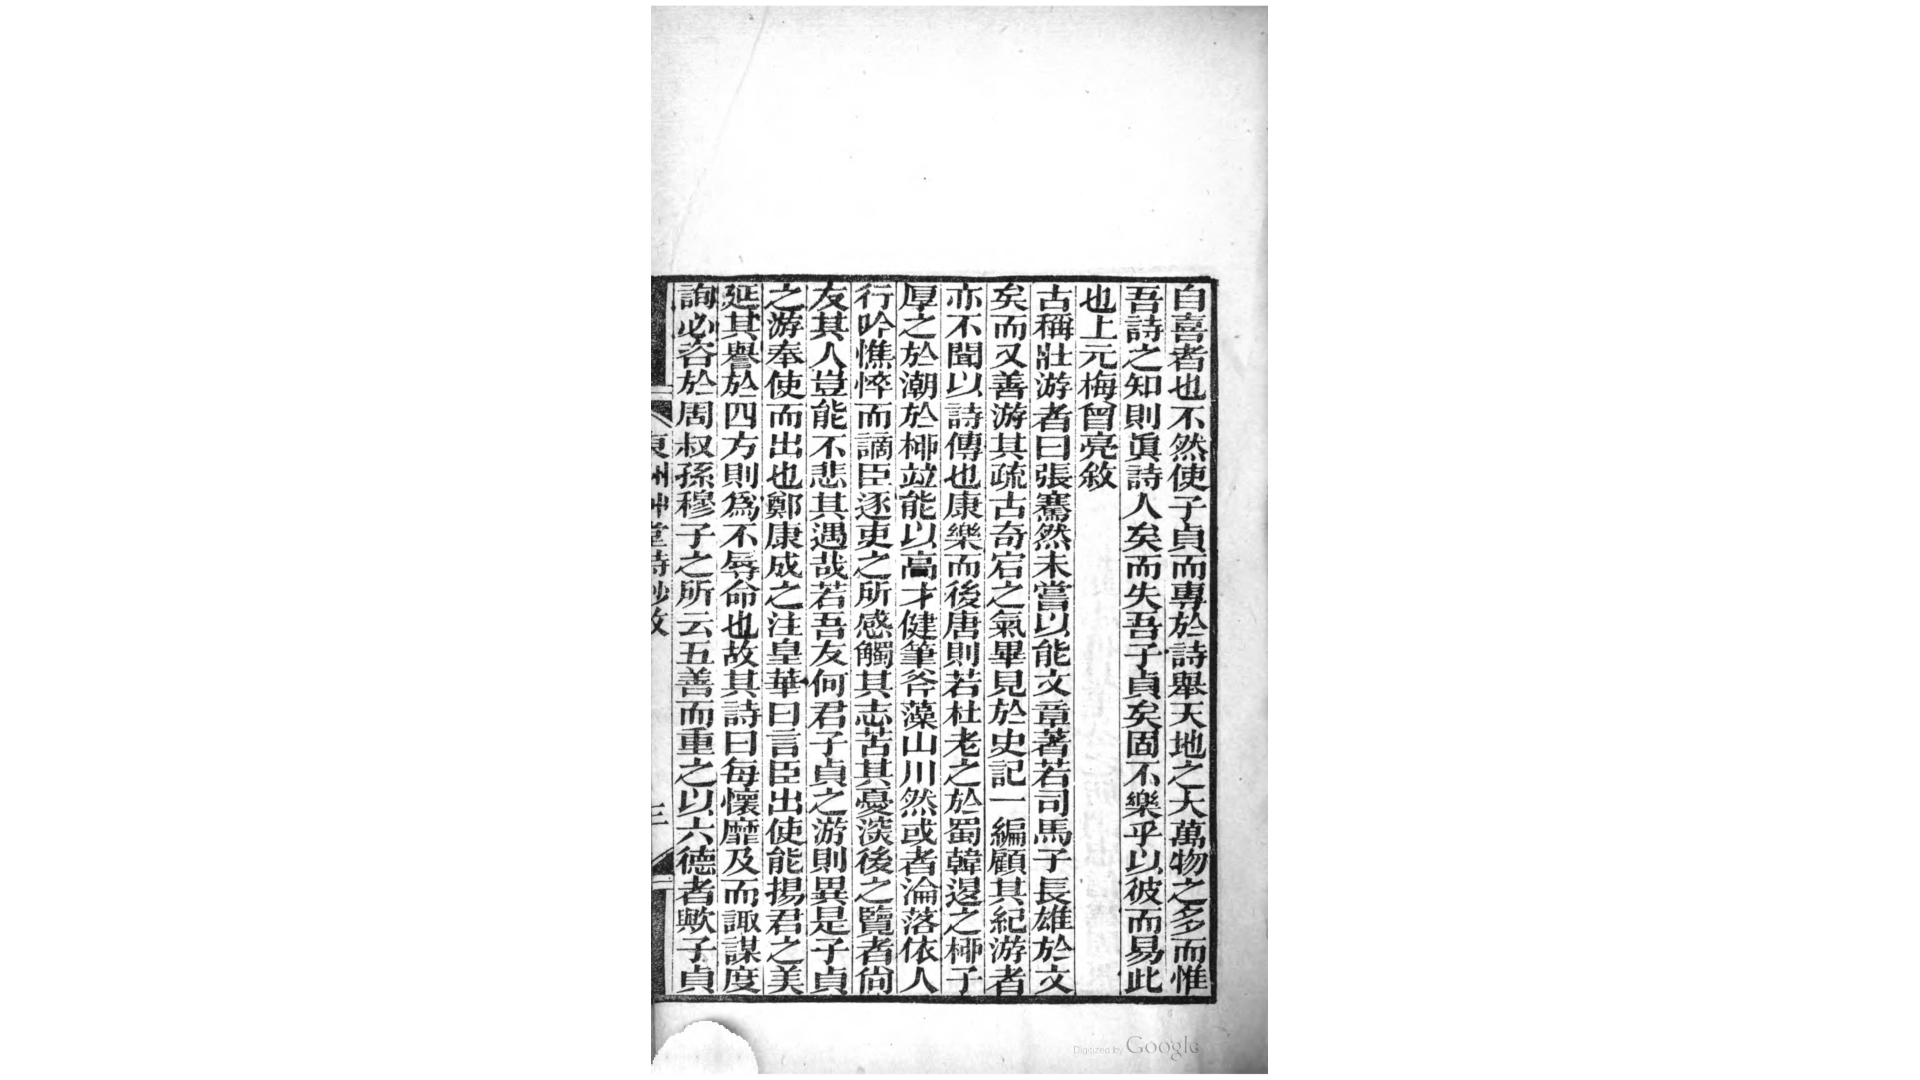 自喜者也不然使子貞而專於詩舉天地之大萬物之多而惟
吾詩之知則眞詩人矣而失吾子貞矣固不樂乎以彼而易此
也上元梅曾亮敘
古稱壯游者曰張騫然未嘗以能文章著若司馬子長雄於文
矣而又善游其疏古奇宕之氣畢見於史記一編顧其紀游者
亦不聞以詩傳也康樂而後唐則若杜老之於蜀韓退之桺子
厚之於潮於桺竝能以高才健筆谷藻山川然或者淪落依人
行吟憔悴而謫臣逐吏之所感觸其志苦其憂淡後之覽者尙
友其人豈能不悲其遇哉若吾友何君子貞之游則異是子貞
之游奉使而出也鄭康成之注皇華曰言臣出使能揚君之美
延其譽於四方則爲不辱命也故其詩曰每懷靡及而諏謀度
詢必咨於周叔孫穆子之所云五善而重之以六德者歟子貞
東洲艸堂詩鈔敘
三
Digitized by Google